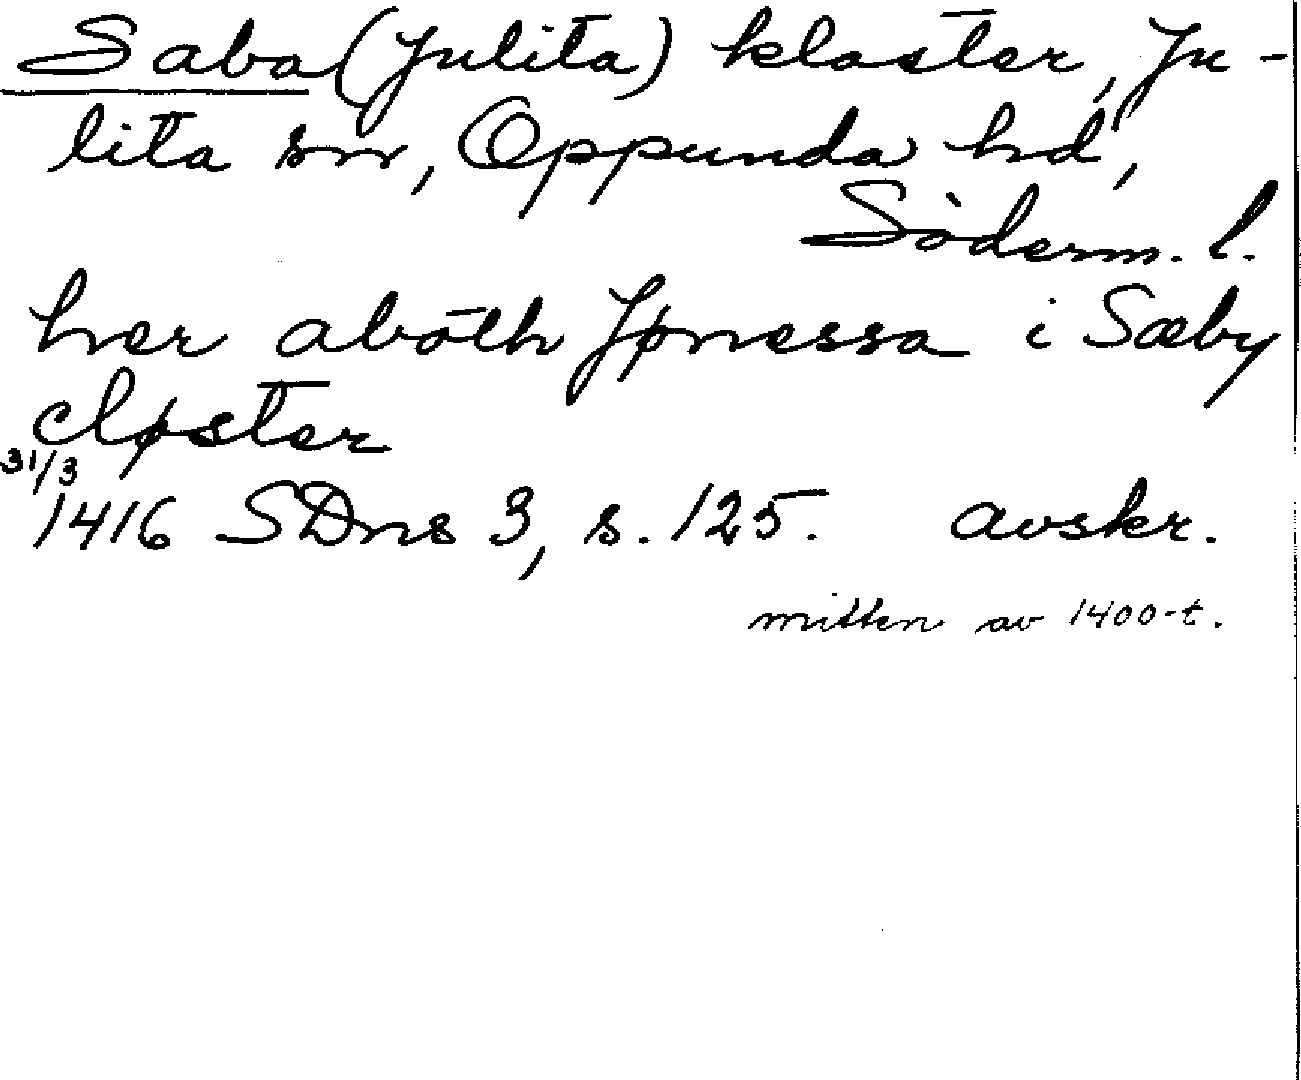 Saba (Julita) kloster, Ju-
lita sn, Oppunda hd,
Söderm. l.
her aboth Jønessa i Sæby
cløster
31/3
1416 SDns 3, s. 125. avskr.
mitten av 1400-t.